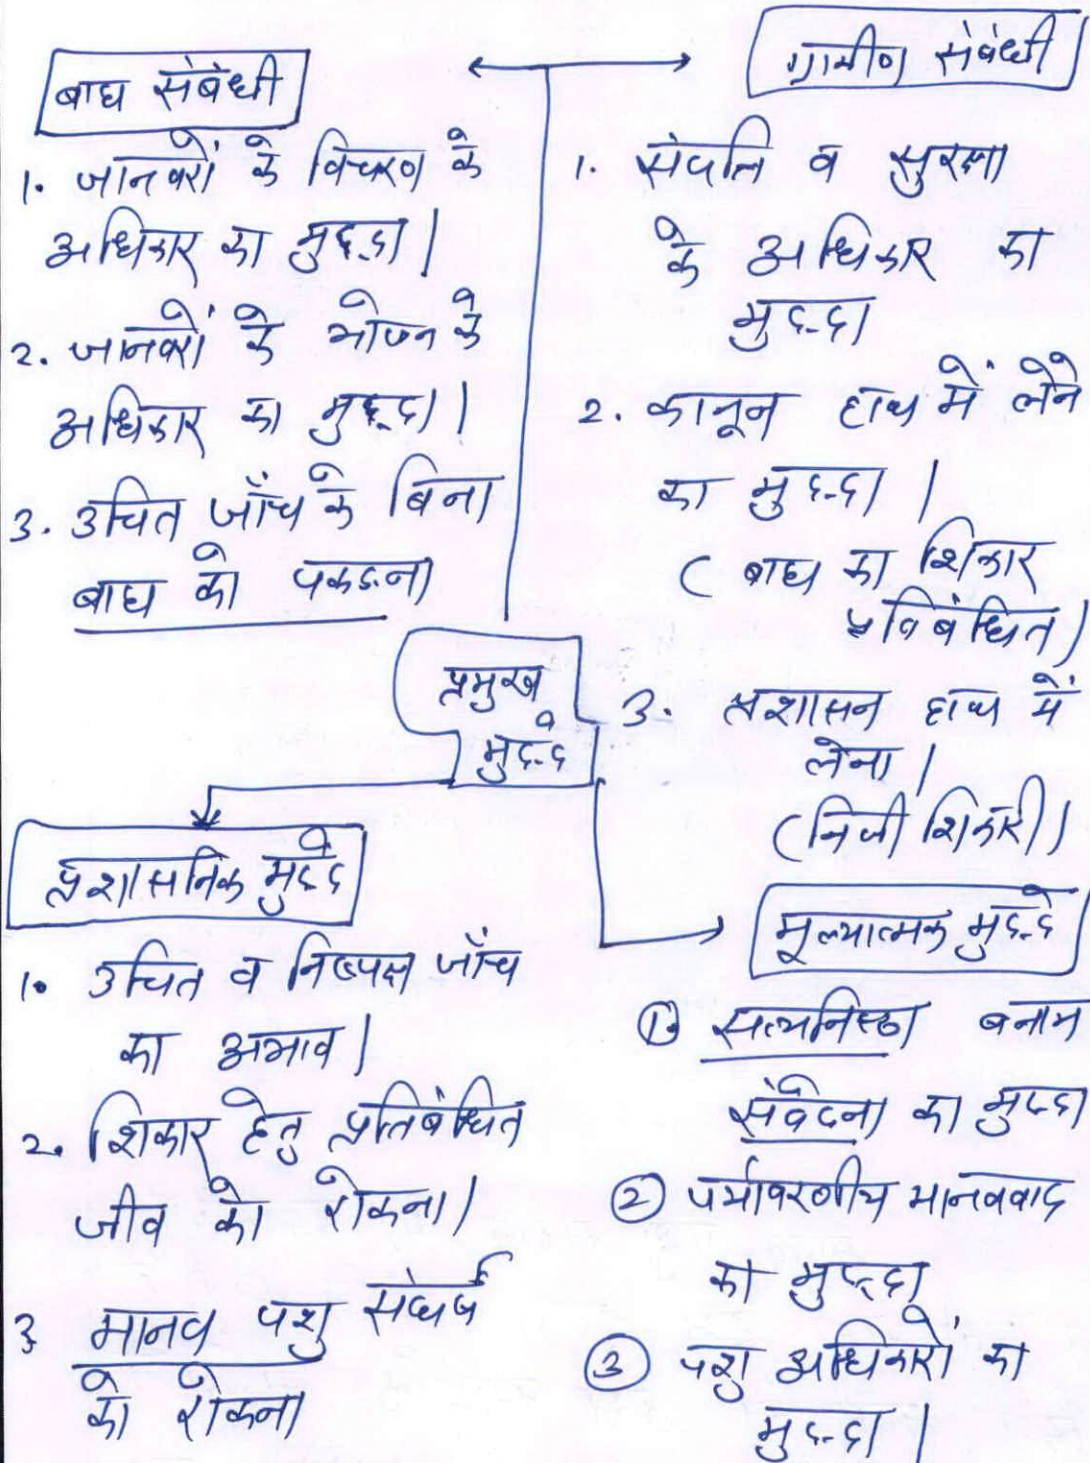 बाघ संबंधी
1. जानवरों के विचरण के
अधिकार का मुद्दा।
2. जानवरों के भोजन के
अधिकार का मुद्दा।
3. उचित जाँच के बिना
बाघ को पकड़ना
ग्रामीण संबंधी
1. संपत्ति व सुरक्षा
के अधिकार का
मुद्दा
2. कानून हाथ में लेने
का मुद्दा।
(बाघ का शिकार
प्रतिबंधित)
3. प्रशासन हाथ में
लेना।
(निजी शिकारी)
प्रमुख
मुद्दे
प्रशासनिक मुद्दे
1. उचित व निष्पक्ष जाँच
का अभाव।
2. शिकार हेतु प्रतिबंधित
जीव को रोकना।
3 मानव पशु संघर्ष
को रोकना
मूल्यात्मक मुद्दे
① सत्यनिष्ठा बनाम
संवेदना का मुद्दा
② पर्यावरणीय मानववाद
का मुद्दा
③ पशु अधिकारों का
मुद्दा।